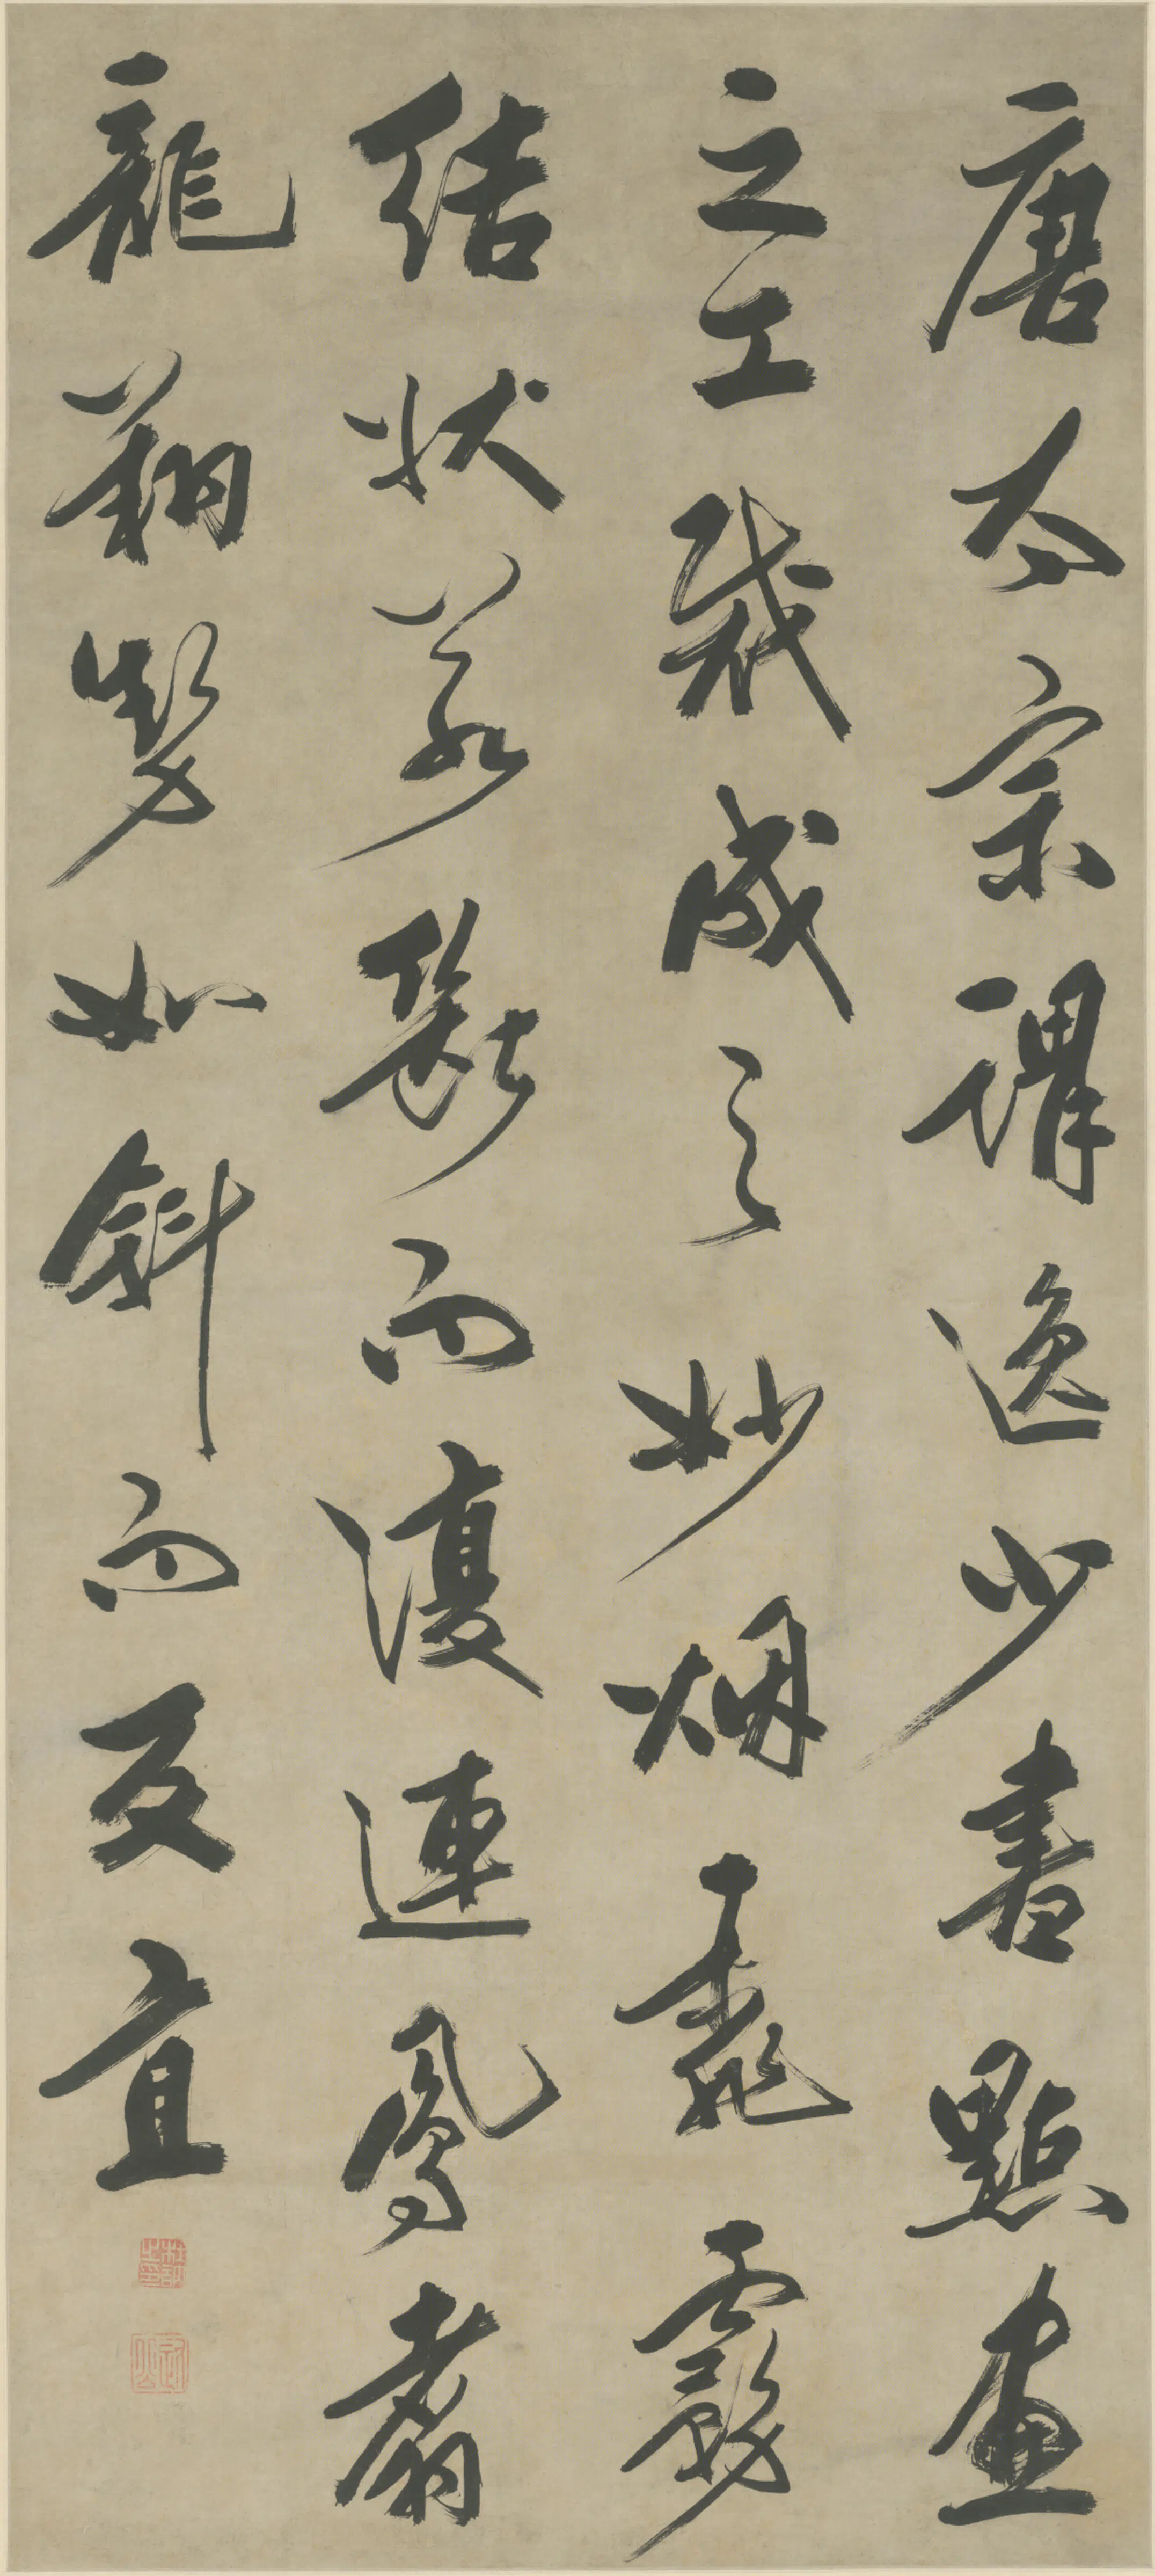 唐太宗謂逸少書點畫
之工裁成之妙烟霏霧
結狀若斷而復連鳳翥
龍翔勢如斜而反直